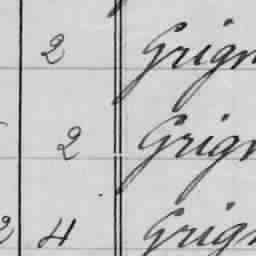 2 Grign
2 Grign
2 4 Grign